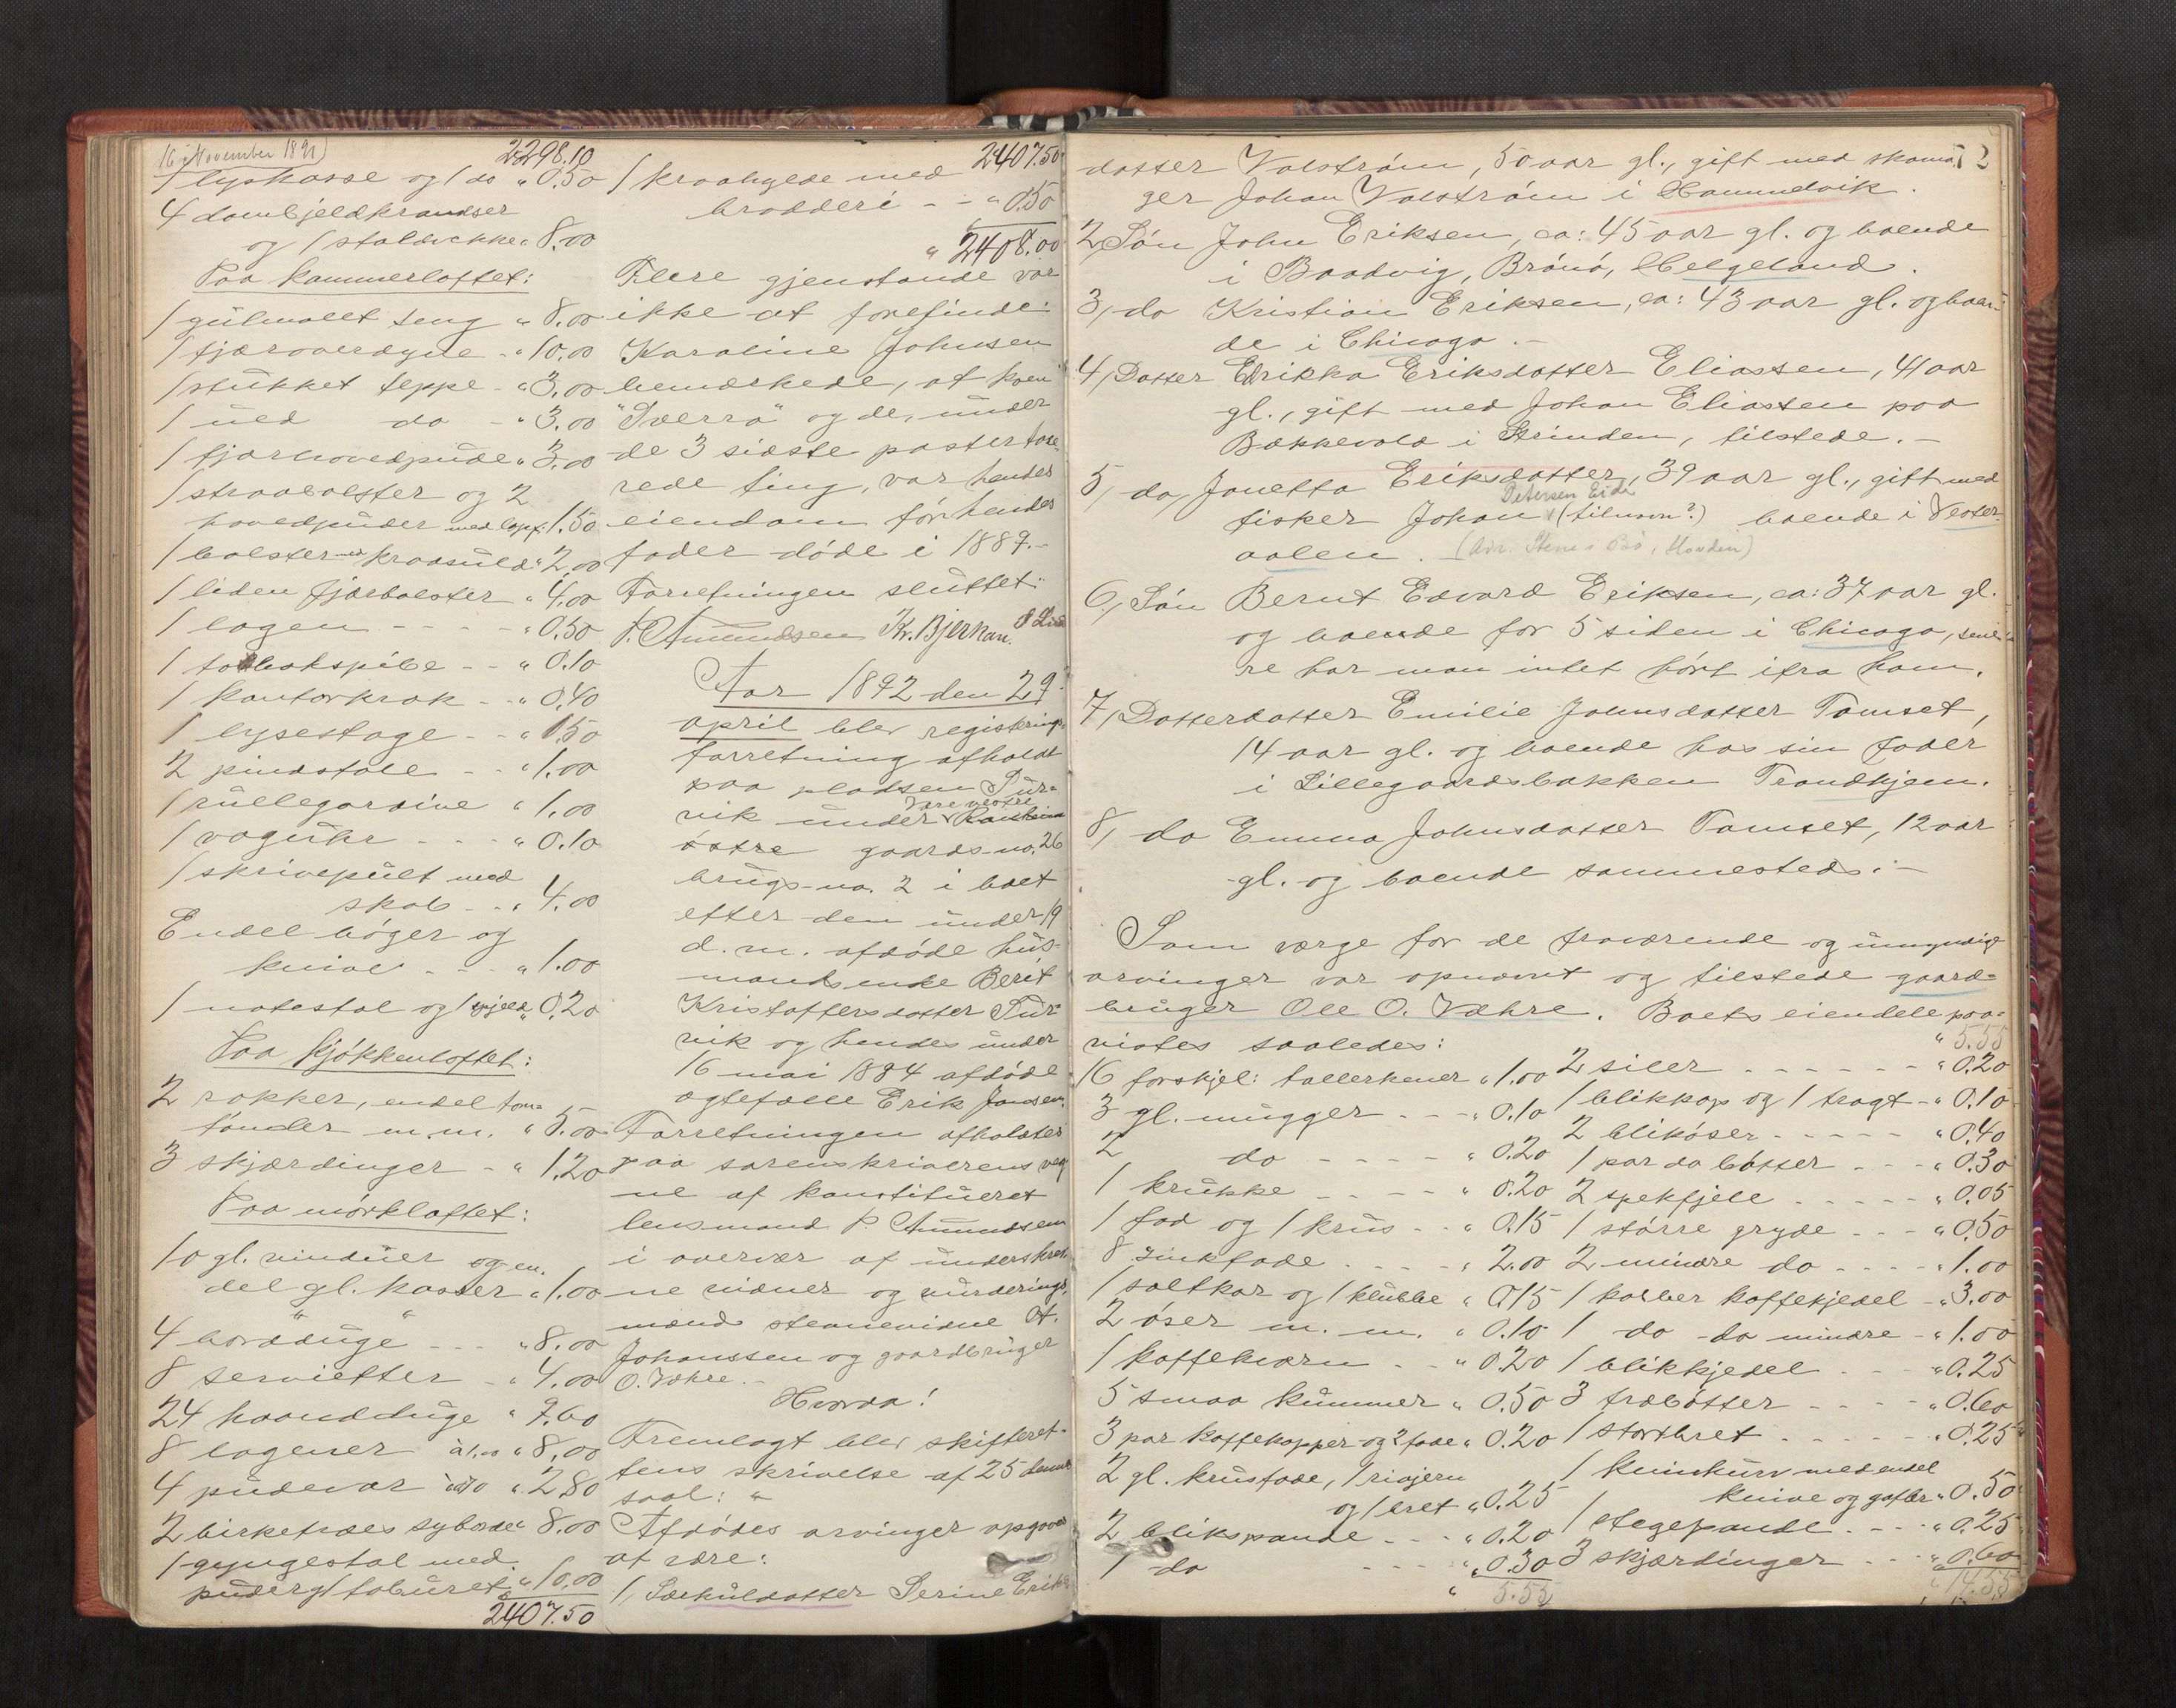 16 November 1891)
2298.10
1 lyskasse og 1 do " 0.50
4 dombjeldkrandser
og 1 staldlykke " 8.00
Paa kammerloftet:
1 gulmalt seng " 8.00
1 fjæroverdyne - " 10.00
1 stukket teppe - " 3.00
1 uld do - " 3.00
1 fjærhovedpude " 3.00
1 straabolster og 2
hovedpuder med lapp: 1.50
1 bolster med krøsuld " 2.00
1 liden fjærbolster " 4.00
1 lagen - - - - " 0.50
1 tobakspibe - - " 0.10
1 kontorkrak - - " 0.40
1 lysestage - - " 1.50
2 pindstole - - " 1.00
1 rullegardine " 1.00
1 vaguhr - - - " 0.10
1 skrivepult med
skab - - " 4.00
Endel bøger og
knive - - - " 1.00
1 natestol og 1 spjeld " 0.20
Paa kjøkkenloftet:
2 rokker, endel tom-
tønder m.m. " 5.00
3 skjæringer - " 1.20
Paa mørkloftet:
10 gl. vinduer og en-
del gl. kasser " 1.00
4 bordduge - - - " 8.00
8 servietter - " 4.00
24 haandduge " 9.60
8 lagener à 1.00 " 8.00
4 pudevar à 0.70 " 2.80
2 birketræes syborde " 8.00
1 gyngestol med
puder og 1 taburet " 10.00
2407.50
2407.50
1 kraahyede med
broderi - - " 0.50
" 2408.00
Flere gjenstande var
ikke at forefinde.
Karoline Johnsen
bemærkede, at koen
"Sverra" og de, under
de 3 sidste posterførte
rede ting, var hendes
eiendom før hendes
fader døde i 1889.-
Forretningen sluttet.
P. Amundsen Kr. Bjerkan. O Lia
Aar 1892 den 29.
april blev registrerings-
forretning afholdt
paa pladsen Pur-
Være vestre
vik under Ranheim
østre gaards-no. 26
brugs-no. 2 i boet
efter den under 19
d. m. afdøde hus-
mandsenke Berit
Kristoffersdatter Pur-
vik og hendes under
16 mai 1884 afdøde
ægtefælle Erik Jonsen.
Forretningen afholdtes
paa sorenskriverens veg-
ne af konstitueret
lensmand P. Amundsen
i overvær af underskrev-
ne vidner og vurderings-
mænd stevnevidne A.
Johanssen og gaardbruger
O. Være.-
Hvorda!
Fremlagt blev skifteret-
tens skrivelse af 25 denne
saal: "
Afdødes arvinger opgaves
at være:
1, Særkuldatter Serine Eriks
52
datter Valstrøm, 50 aar gl., gift med skoma
ger Johan Valstrøm i Hommelvik.
2, Søn John Eriksen, ca: 45 aar gl. og boende
i Baadvig, Brønø, Helgeland.
3, do Kristian Eriksen, ca: 43 aar gl. og boen-
de i Chicago.-
4, Datter Edrikka Eriksdatter Eliassen, 41 aar
gl., gift med Johan Eliassen paa
Bækkevold i Strinden, tilstede.-
5, do, Janetta Eriksdatter, 39 aar gl., gift med
Petersen Eide
fisker Johan (tilnavn?) boende i Vester-
aalen. (Adr. Stene i Bø, Hovden)
6, Søn Bernt Edvard Eriksen, ca: 37 aar gl.
og boende for 5 siden i Chicago, sene-
re har man intet hørt ifra ham.
7, Datterdatter Emilie Johnsdatter Tomset,
14 aar gl. og boende hos sin fader
i Lillegaardsbakken Trondhjem.
8, do Emma Johnsdatter Tomset, 12 aar
gl. og boende sammesteds.-
Som værge for de fraværende og umyndige
arvinger var opnævnt og tilstede gaard-
bruger Ole O. Være. Boets eiendele paa-
vistes saaledes:
16 forskjel: tallerkener " 1.00
3 gl. mugger - - - " 0.10
2 do - - - - " 0.20
1 krukke - - - - " 0.20
1 fad og 1 krus - - " 0.15
8 zinkfade - - - - " 2.00
1 saltkar og 1 klubbe " 0.15
2 øser m. m. " 0.10
1 kaffekværn - - " 0.20
5 smaa kummer " 0.50
3 par kaffekopper og 2 fade " 0.20
2 gl. krusfade, 1 rivjern
og 1 bret " 0.25
2 blikspande - - - " 0.20
1 do - - - - " 0.30
" 5.55
" 5.55
2 siler - - - - - - " 0.20
1 blikkop og 1 tragt - " 0.10
2 blikøser - - - - - " 0.40
1 par do bøtter - - - " 0.30
2 spekfjele - - - - - " 0.05
1 større gryde - - - " 0.50
2 mindre do - - - - " 1.00
1 kobber kaffekjedel - " 3.00
1 do do mindre - " 1.00
1 blikkjedel - - - " 0.25
3 træbøtter - - - - " 0.60
1 stortbret - - - - - " 0.25
1 knivkurv med endel
knive og gafler " 0.50
1 stegepande - - - " 0.25
3 skjæringer - - - " 0.60
" 14.55